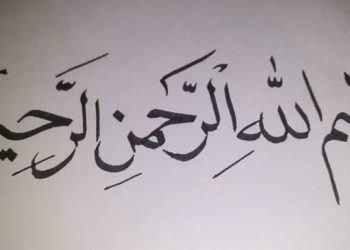 م اللهِ الرَّحمنِ الرَّحي